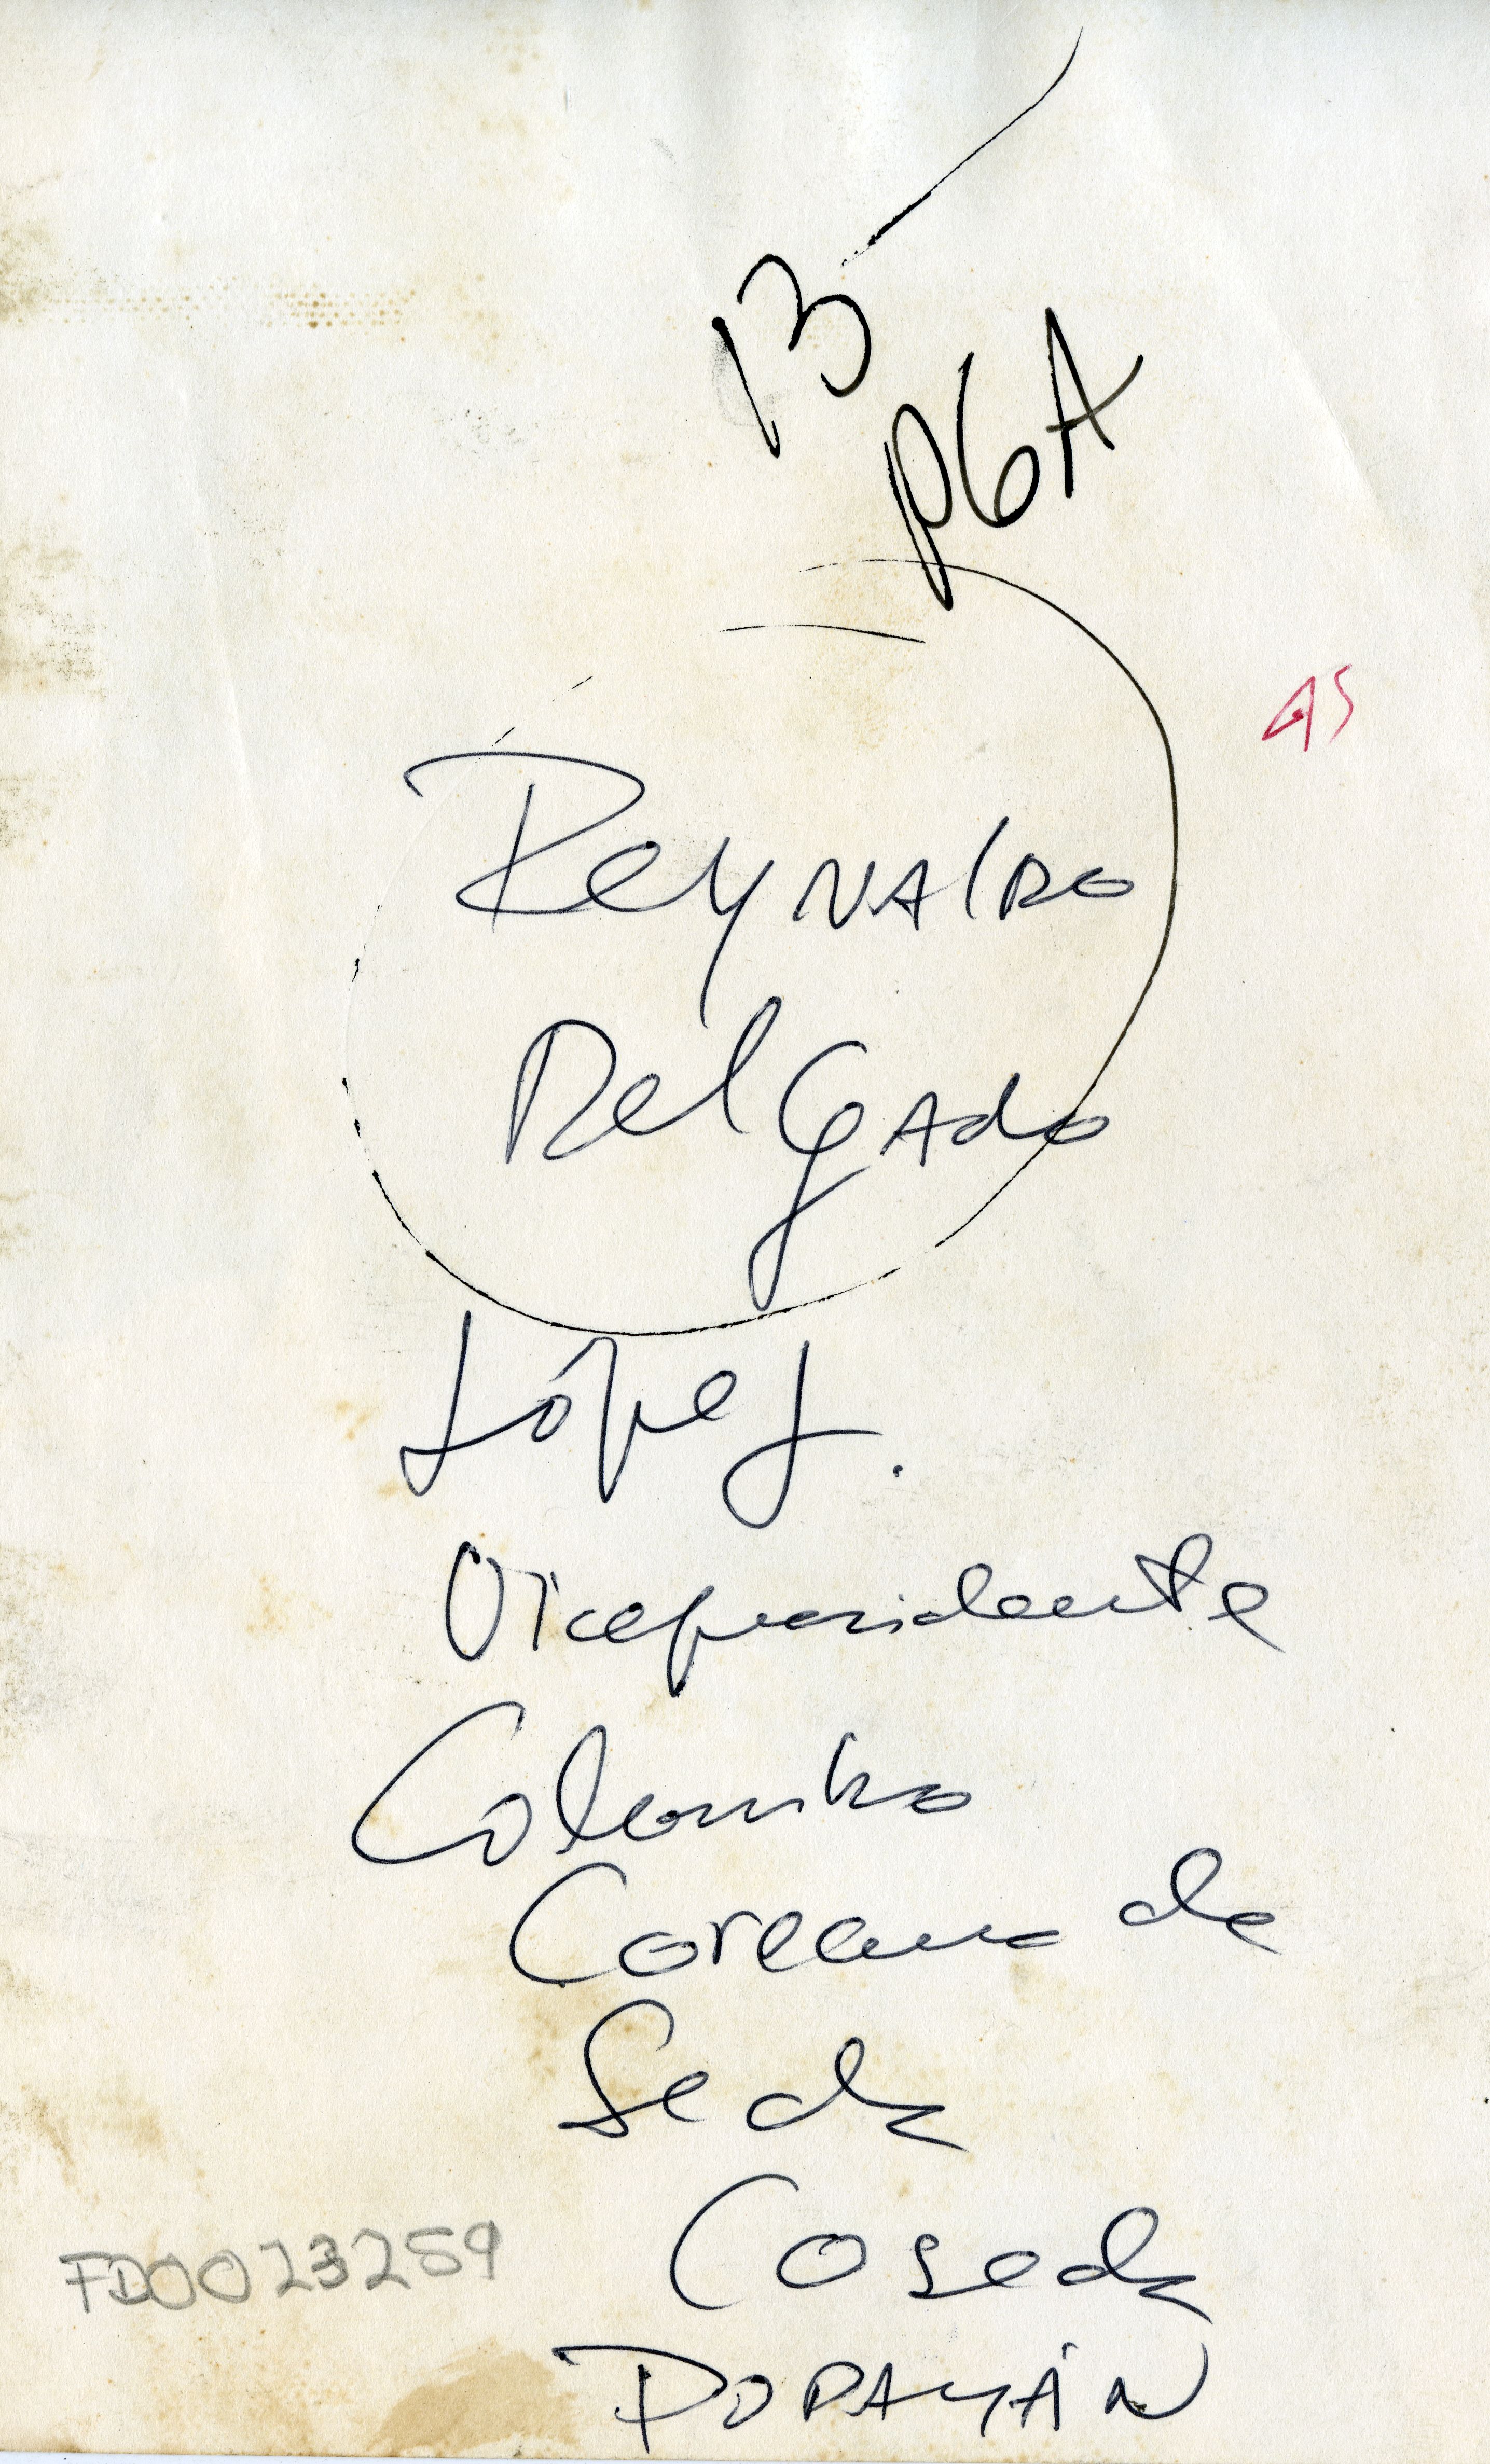 13
P6A
45
Reynaldo
Delgado
López.
Vicepresidente
Colombo
Coreana de
Seda
Coseda
POPAYÁN
FD0023259